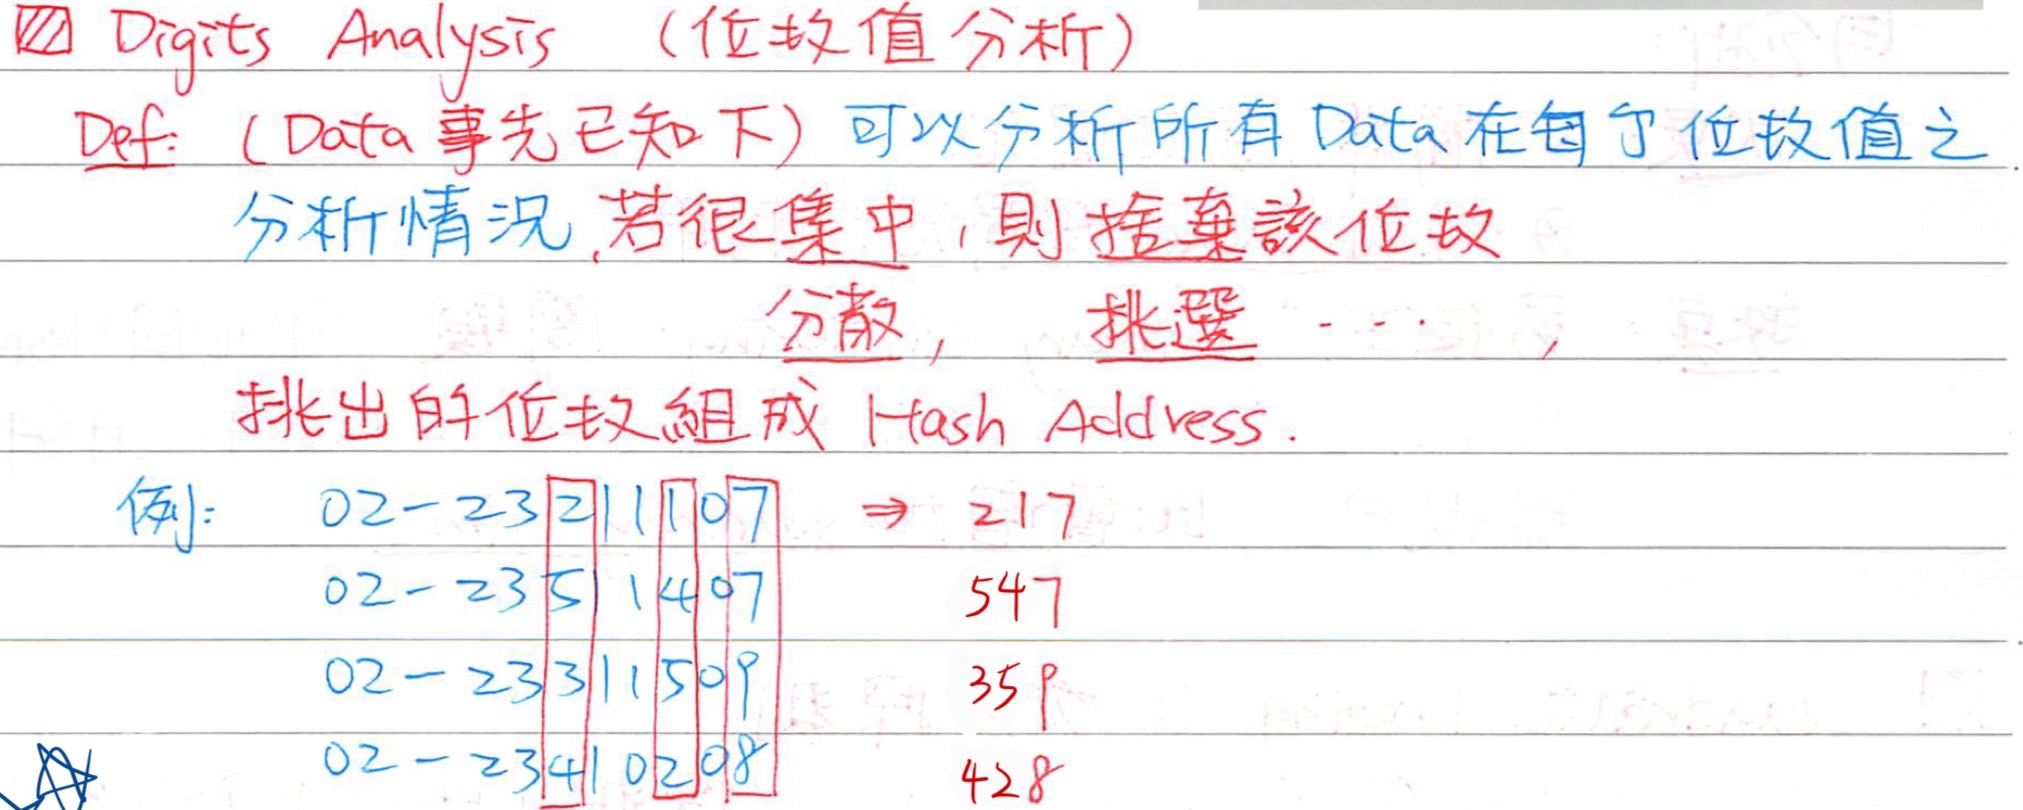 Digits Analysis (位数值分析)
Def: (Data 事先已知下) 可以分析所有 Data 在每个位数值之
分析情況, 若很集中, 則捨棄該位数
分散, 挑選 ...,
挑出的位数組成 Hash Address.
例: 02-23211107 ⇒ 217
02-2351407 547
02-23311509 359
02-23410208 428